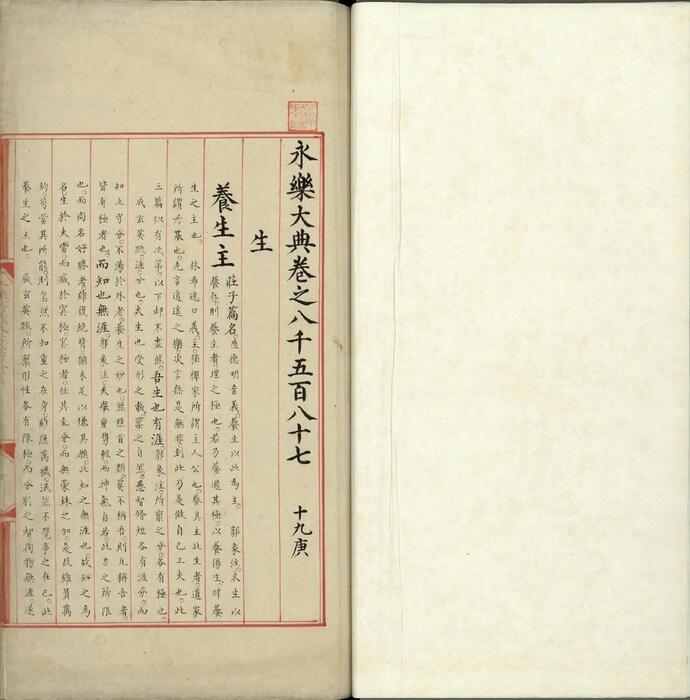 永樂大典卷之八千五百八十七　十九庚
生
養生主
莊子篇名。陸德明音義。養生以此為主。　郭象注。夫生以
養存。則養生者理之極也。若乃養過其極。以養傷生。非養
生之主也。　林希逸口義。主猶禪家所謂主人公也。養其主此生者。道家
所謂丹基也。先言逍遙之樂。次言無是無非。到此乃是做自己工夫也。此
三篇似有次第。以下却不盡然。吾生也有涯。郭象注。所稟之分。各有極也。
成玄英疏。涯。分也。夫生也受形之載。稟之自然。愚智脩短。各有涯分。而
知止守分。不蕩於外者。養生之妙也。然黔首之類。莫不稱吾。則凡稱吾者。
皆有極者也。而知也無涯。郭象注。夫舉重攜輕。而神氣自若。此力之所限
也。而尚名好勝者。雖復絕膂。猶未足以慊其願。此知之無涯也。故知之為
名。生於失當。而滅於冥極。冥極者。任其至分。而無毫銖之加。是故雖負萬
鈞。苟當其所能。則忽然不知重之在身。雖應萬機。泯然不覺事之在己。此
養生之主也。　成玄英疏。所稟形性。各有限極。而分別之智。徇物無涯。遂